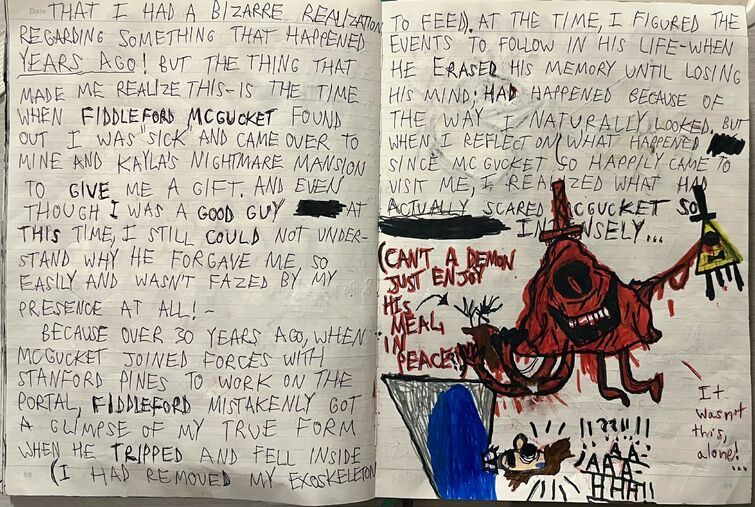 Date
THAT I HAD A BIZARRE REALIZATION
REGARDING SOMETHING THAT HAPPENED
YEARS AGO! BUT THE THING THAT
MADE ME REALIZE THIS-IS THE TIME
WHEN FIDDLEFORD MCGUCKET FOUND
OUT I WAS "SICK" AND CAME OVER TO
MINE AND KAYLA'S NIGHTMARE MANSION
TO GIVE ME A GIFT. AND EVEN
THOUGH I WAS A GOOD GUY AT
THIS TIME, I STILL COULD NOT UNDER-
STAND WHY HE FORGAVE ME SO
EASILY AND WASN'T FAZED BY MY
PRESENCE AT ALL! ~
BECAUSE OVER 30 YEARS AGO, WHEN
MCGUCKET JOINED FORCES WITH
STANFORD PINES TO WORK ON THE
PORTAL, FIDDLEFORD MISTAKENLY GOT
A GLIMPSE OF MY TRUE FORM
WHEN HE TRIPPED AND FELL INSIDE
(I HAD REMOVED MY EXOSKELETON
68
TO FEED). AT THE TIME, I FIGURED THE
EVENTS TO FOLLOW IN HIS LIFE-WHEN
HE ERASED HIS MEMORY UNTIL LOSING
HIS MIND; HAD HAPPENED BECAUSE OF
THE WAY I NATURALLY LOOKED. BUT
WHEN I REFLECT ON WHAT HAPPENED
SINCE MCGUCKET SO HAPPILY CAME TO
VISIT ME, I REALIZED WHAT HAD
ACTUALLY SCARED MCGUCKET SO
INTENSELY...
(CAN'T A DEMON
JUST ENJOY
HIS
MEAL
IN
PEACE?!)
It
wasn't
this,
alone!...
!!?!!
AA-
AAA-
HHH!!
69